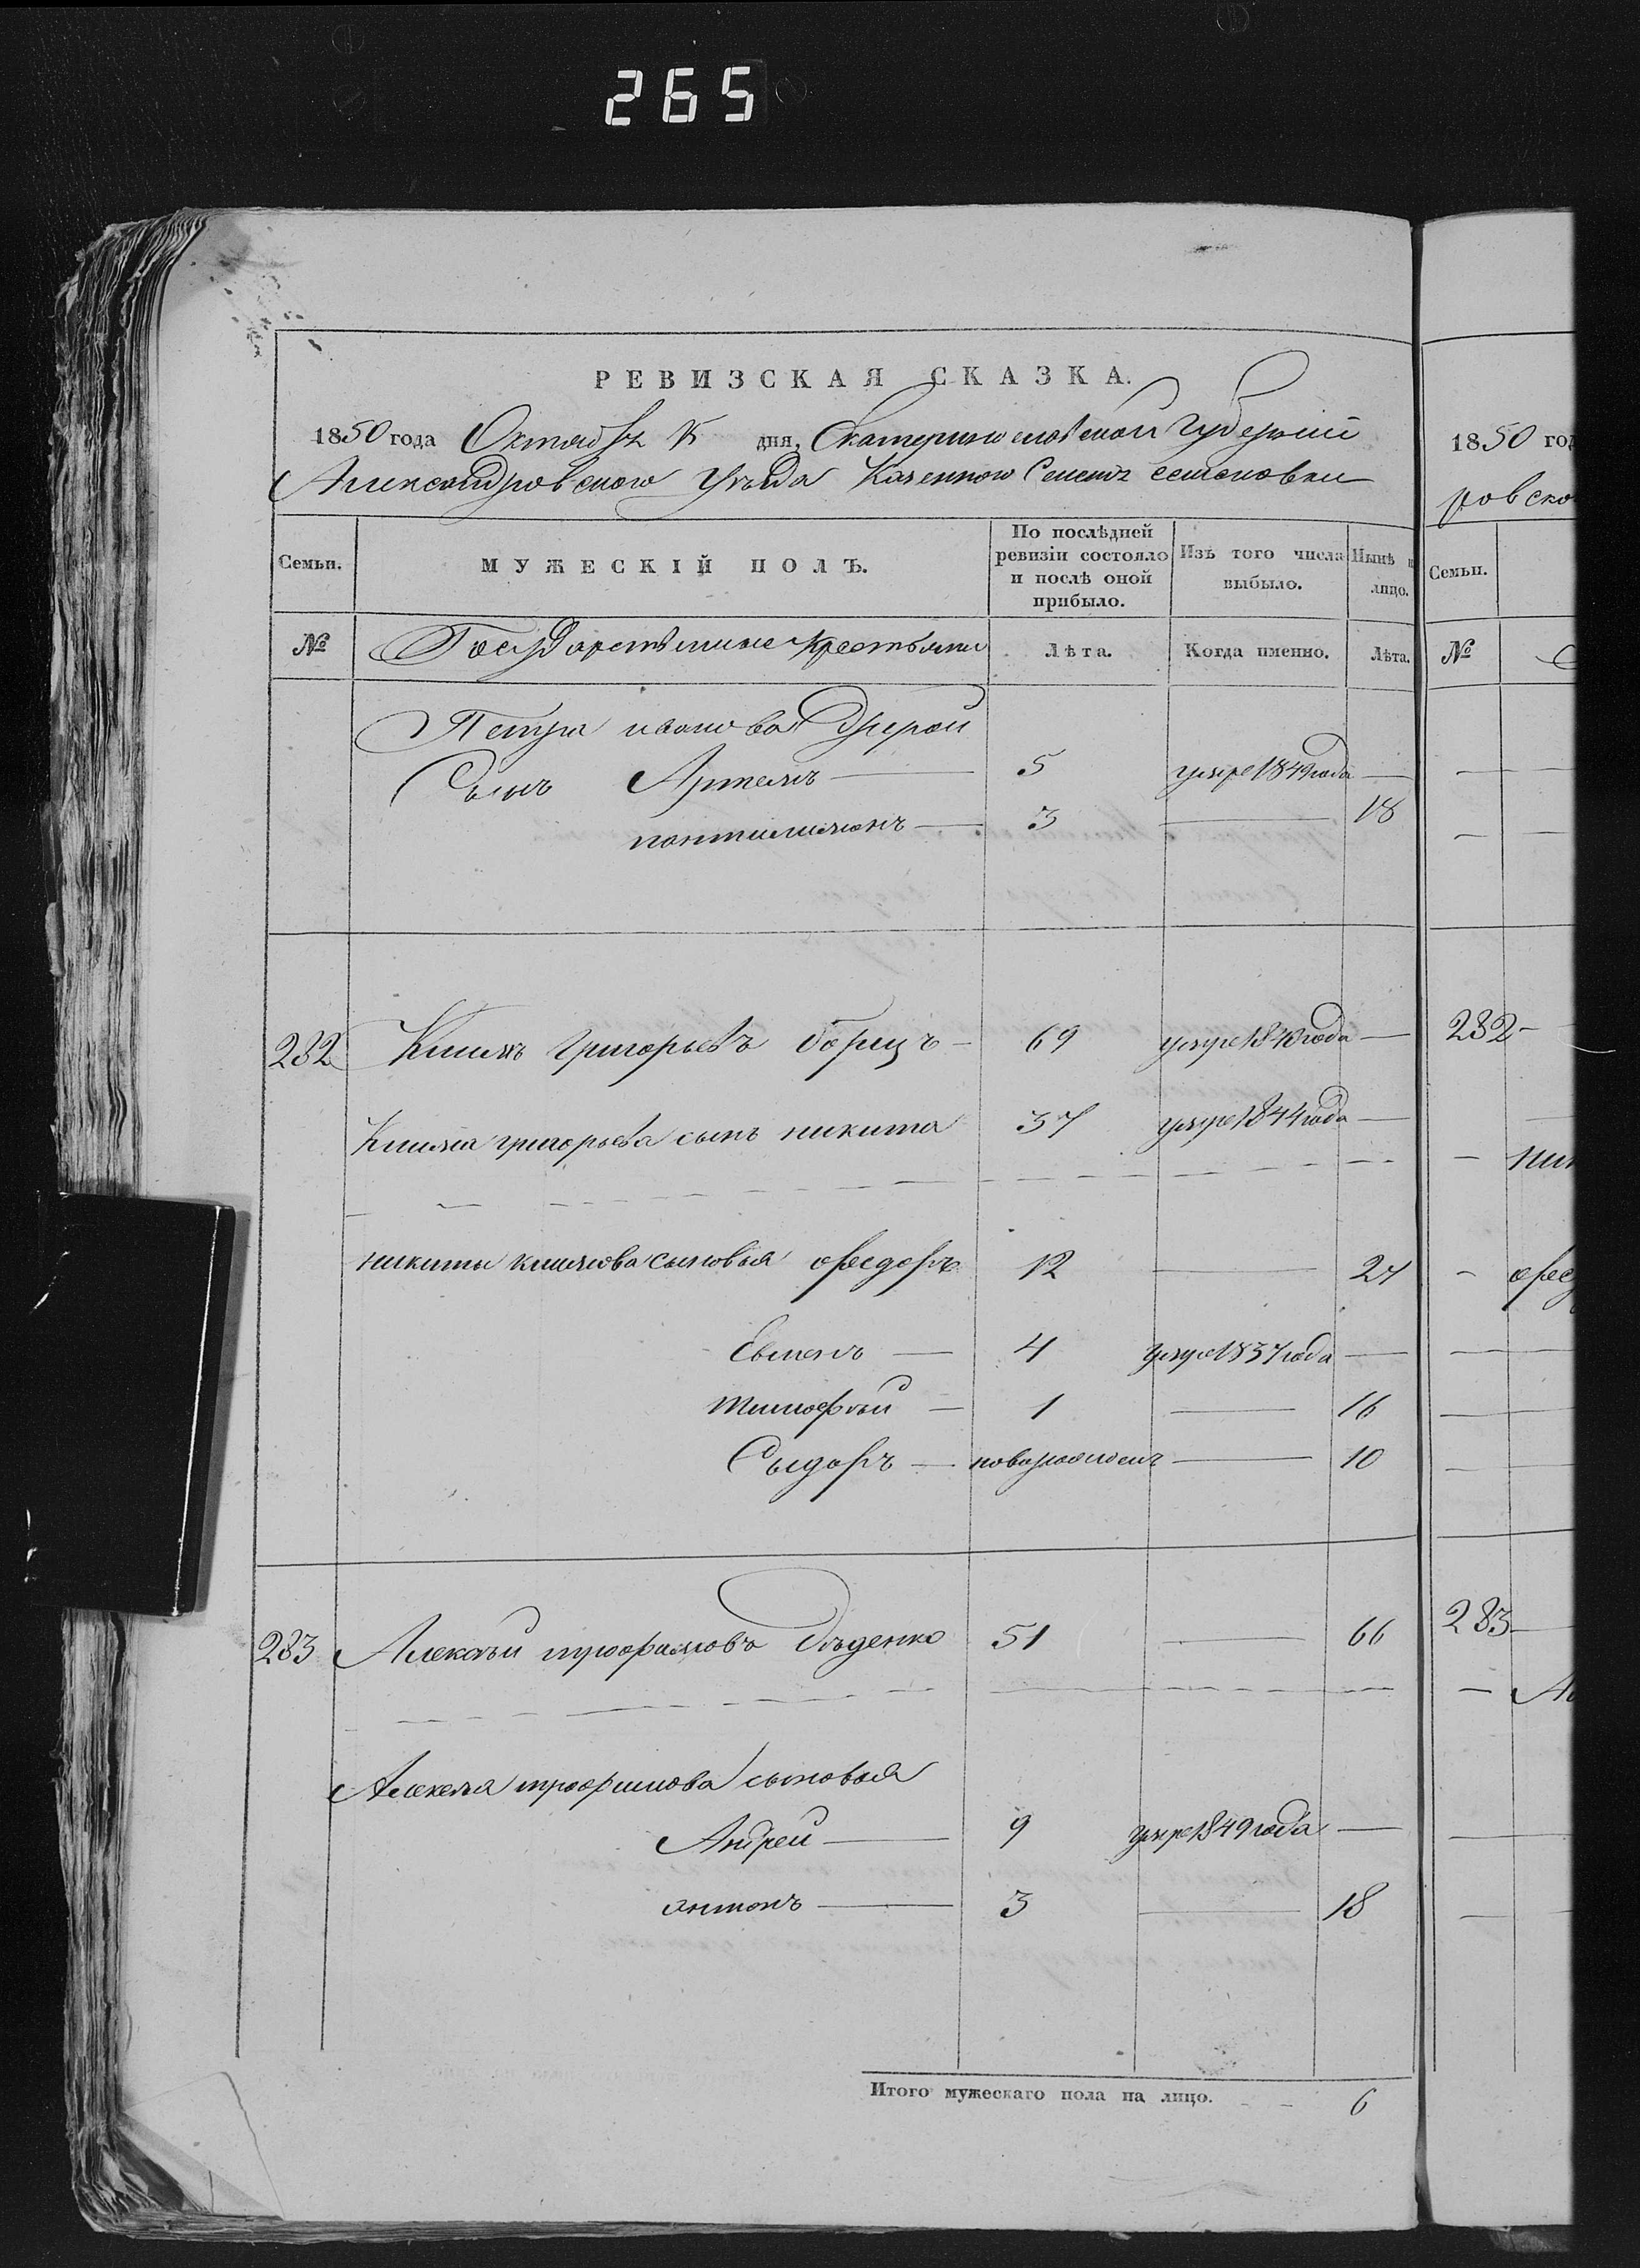 265
РЕВИЗСКАЯ СКАЗКА.
1850 года Октября 15 дня, Екатеринославской Губернии
Александровского Уезда Казенного Селения семеновки
Семьи.
МУЖЕСКІЙ ПОЛЪ.
По послѣдней ревизіи состояло и послѣ оной прибыло.
Изъ того числа выбыло.
Нынѣ н лицо.
№
Государственные крестьяне
Лѣта.
Когда именно.
Лѣта.
Петра иванова Другой
Сынъ Артемъ — 5 умре 1849 года —
пантилимонъ — 3 — 18
232 Климъ Григорьевъ борщъ — 69 умре 1848 года —
Клима григорьева сынъ никита 37 умре 1844 года —
никиты климова сыновья федоръ 12 — 27
Евменъ — 4 умре 1837 года —
тимофѣй — 1 — 16
Сыдоръ — новорожденъ — 10
233 Алексѣй трофимовъ дѣденко 51 — 66
Алексея трофимова сыновья
Андрей — 9 умре 1849 года —
антонъ — 3 — 18
Итого мужескаго пола на лицо. - - 6
1850 год
ровско
Семьи.
№
232 -
ник
фед
233
Ал